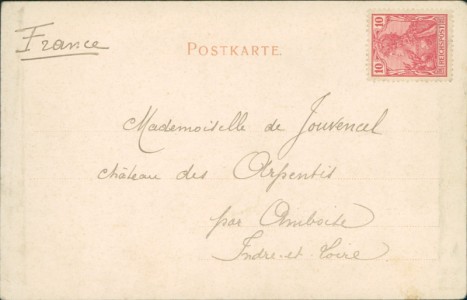 France
POSTKARTE.
10 10
REICHSPOST
Mademoiselle de Jouvencel
château des Arpentis
par Amboise
Indre-et-Loire